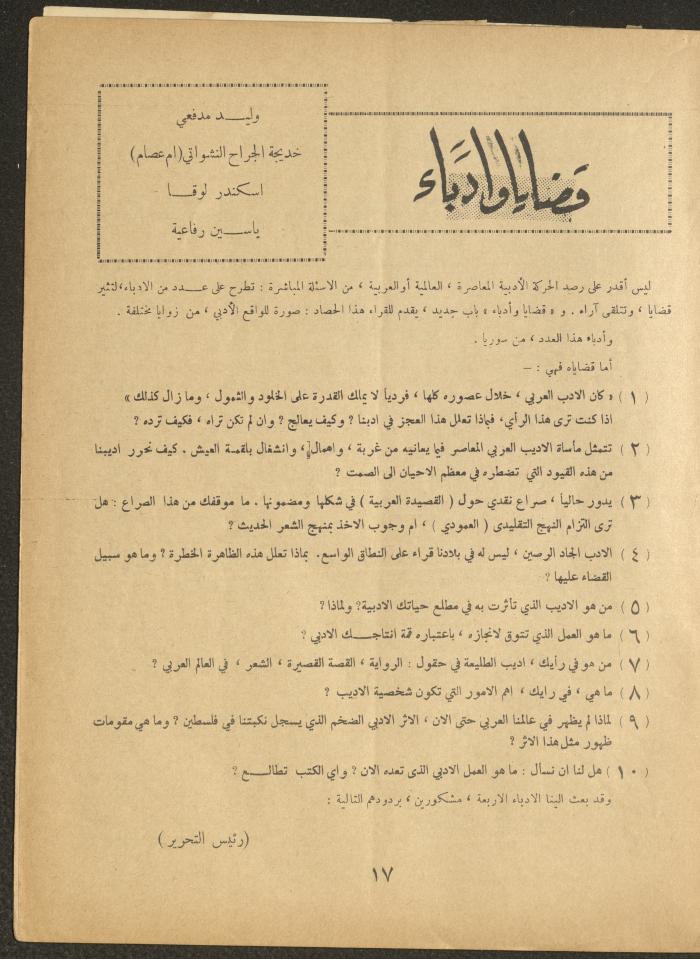 قضايا وأدباء
وليد مدفعي
خديجة الجراح النشواتي (ام عصام)
اسكندر لوقا
ياسين رفاعية
ليس أقدر على رصد الحركة الأدبية المعاصرة ، العالمية أو العربية ، من الاسئلة المباشرة : تطرح على عدد من الادباء، لتثير
قضايا ، وتتلقى آراء . و « قضايا وأدباء » باب جديد ، يقدم للقراء هذا الحصاد : صورة للواقع الأدبي ، من زوايا مختلفة .
وأدباء هذا العدد ، من سوريا .
أما قضاياه فهي : —
( ١ ) « كان الادب العربي ، خلال عصوره كلها ، فردياً لا يملك القدرة على الخلود والشمول ، وما زال كذلك »
اذا كنت ترى هذا الرأي، فبماذا تعلل هذا العجز في ادبنا ؟ وكيف يعالج ؟ وان لم تكن تراه ، فكيف ترده ؟
( ٢ ) تتمثل مأساة الاديب العربي المعاصر فيما يعانيه من غربة ، واهمال ، وانشغال بلقمة العيش . كيف نحرر اديبنا
من هذه القيود التي تضطره في معظم الاحيان الى الصمت ؟
( ٣ ) يدور حالياً ، صراع نقدي حول ( القصيدة العربية ) في شكلها ومضمونها . ما موقفك من هذا الصراع : هل
ترى التزام النهج التقليدى ( العمودي ) ، ام وجوب الاخذ بمنهج الشعر الحديث ؟
( ٤ ) الادب الجاد الرصين ، ليس له في بلادنا قراء على النطاق الواسع. بماذا تعلل هذه الظاهرة الخطرة ؟ وما هو سبيل
القضاء عليها ؟
( ٥ ) من هو الاديب الذي تأثرت به في مطلع حياتك الادبية؟ ولماذا ؟
( ٦ ) ما هو العمل الذي تتوق لانجازه ، باعتباره قمة انتاجك الادبي ؟
( ٧ ) من هو في رأيك ، اديب الطليعة في حقول : الرواية ، القصة القصيرة ، الشعر ، في العالم العربي ؟
( ٨ ) ما هي ، في رايك ، اهم الامور التي تكون شخصية الاديب ؟
( ٩ ) لماذا لم يظهر في عالمنا العربي حتى الان ، الاثر الادبي الضخم الذي يسجل نكبتنا في فلسطين ؟ وما هي مقومات
ظهور مثل هذا الاثر ؟
( ١٠ ) هل لنا ان نسأل : ما هو العمل الادبي الذى تعده الان ؟ واي الكتب تطالع ؟
وقد بعث الينا الادباء الاربعة ، مشكورين ، بردودهم التالية :
( رئيس التحرير )
١٧